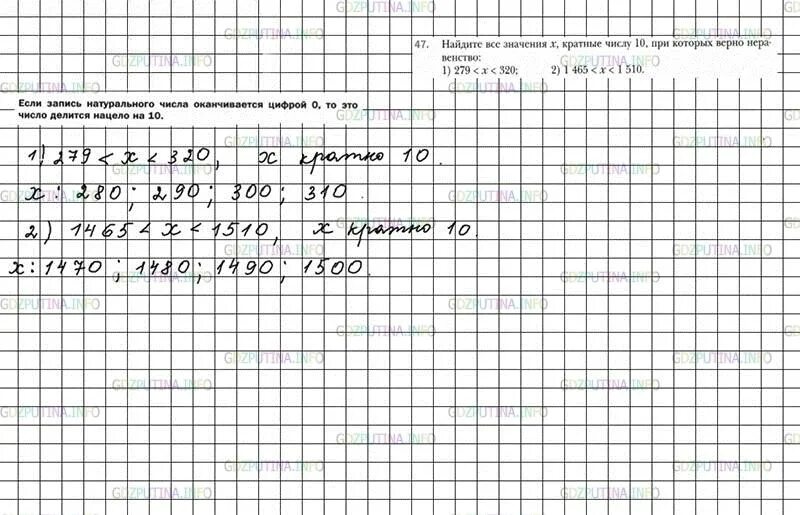 47. Найдите все значения x, кратные числу 10, при которых верно нера-
венство:
1) 279 < x < 320; 2) 1 465 < x < 1 510.
Если запись натурального числа оканчивается цифрой 0, то это
число делится нацело на 10.
1) 279 < x < 320, x кратно 10.
x: 280; 290; 300; 310.
2) 1465 < x < 1510, x кратно 10.
x: 1470; 1480; 1490; 1500.
GDZPUTINA.INFO